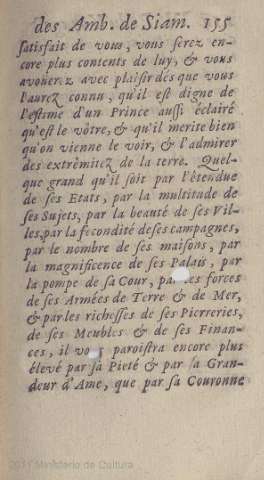 des Amb. de Siam. 155
satisfait de vous, vous serez en-
core plus contents de luy, & vous
avouerez avec plaisir dés que vous
l'aurez connu, qu'il est digne de
l'estime d'un Prince aussi éclairé
qu'est le vôtre, & qu'il merite bien
qu'on vienne le voir, & l'admirer
des extrêmitez de la terre. Quel-
que grand qu'il soit par l'étenduë
de ses Etats, par la multitude de
ses Sujets, par la beauté de ses Vil-
les, par la fecondité de ses campagnes,
par le nombre de ses maisons, par
la magnificence de ses Palais, par
la pompe de sa Cour, par les forces
de ses Armées de Terre & de Mer,
& par les richesses de ses Pierreries,
de ses Meubles & de ses Finan-
ces, il vous paroistra encore plus
élevé par sa Pieté & par sa Gran-
deur d'Ame, que par sa Couronne
2011 Ministerio de Cultura